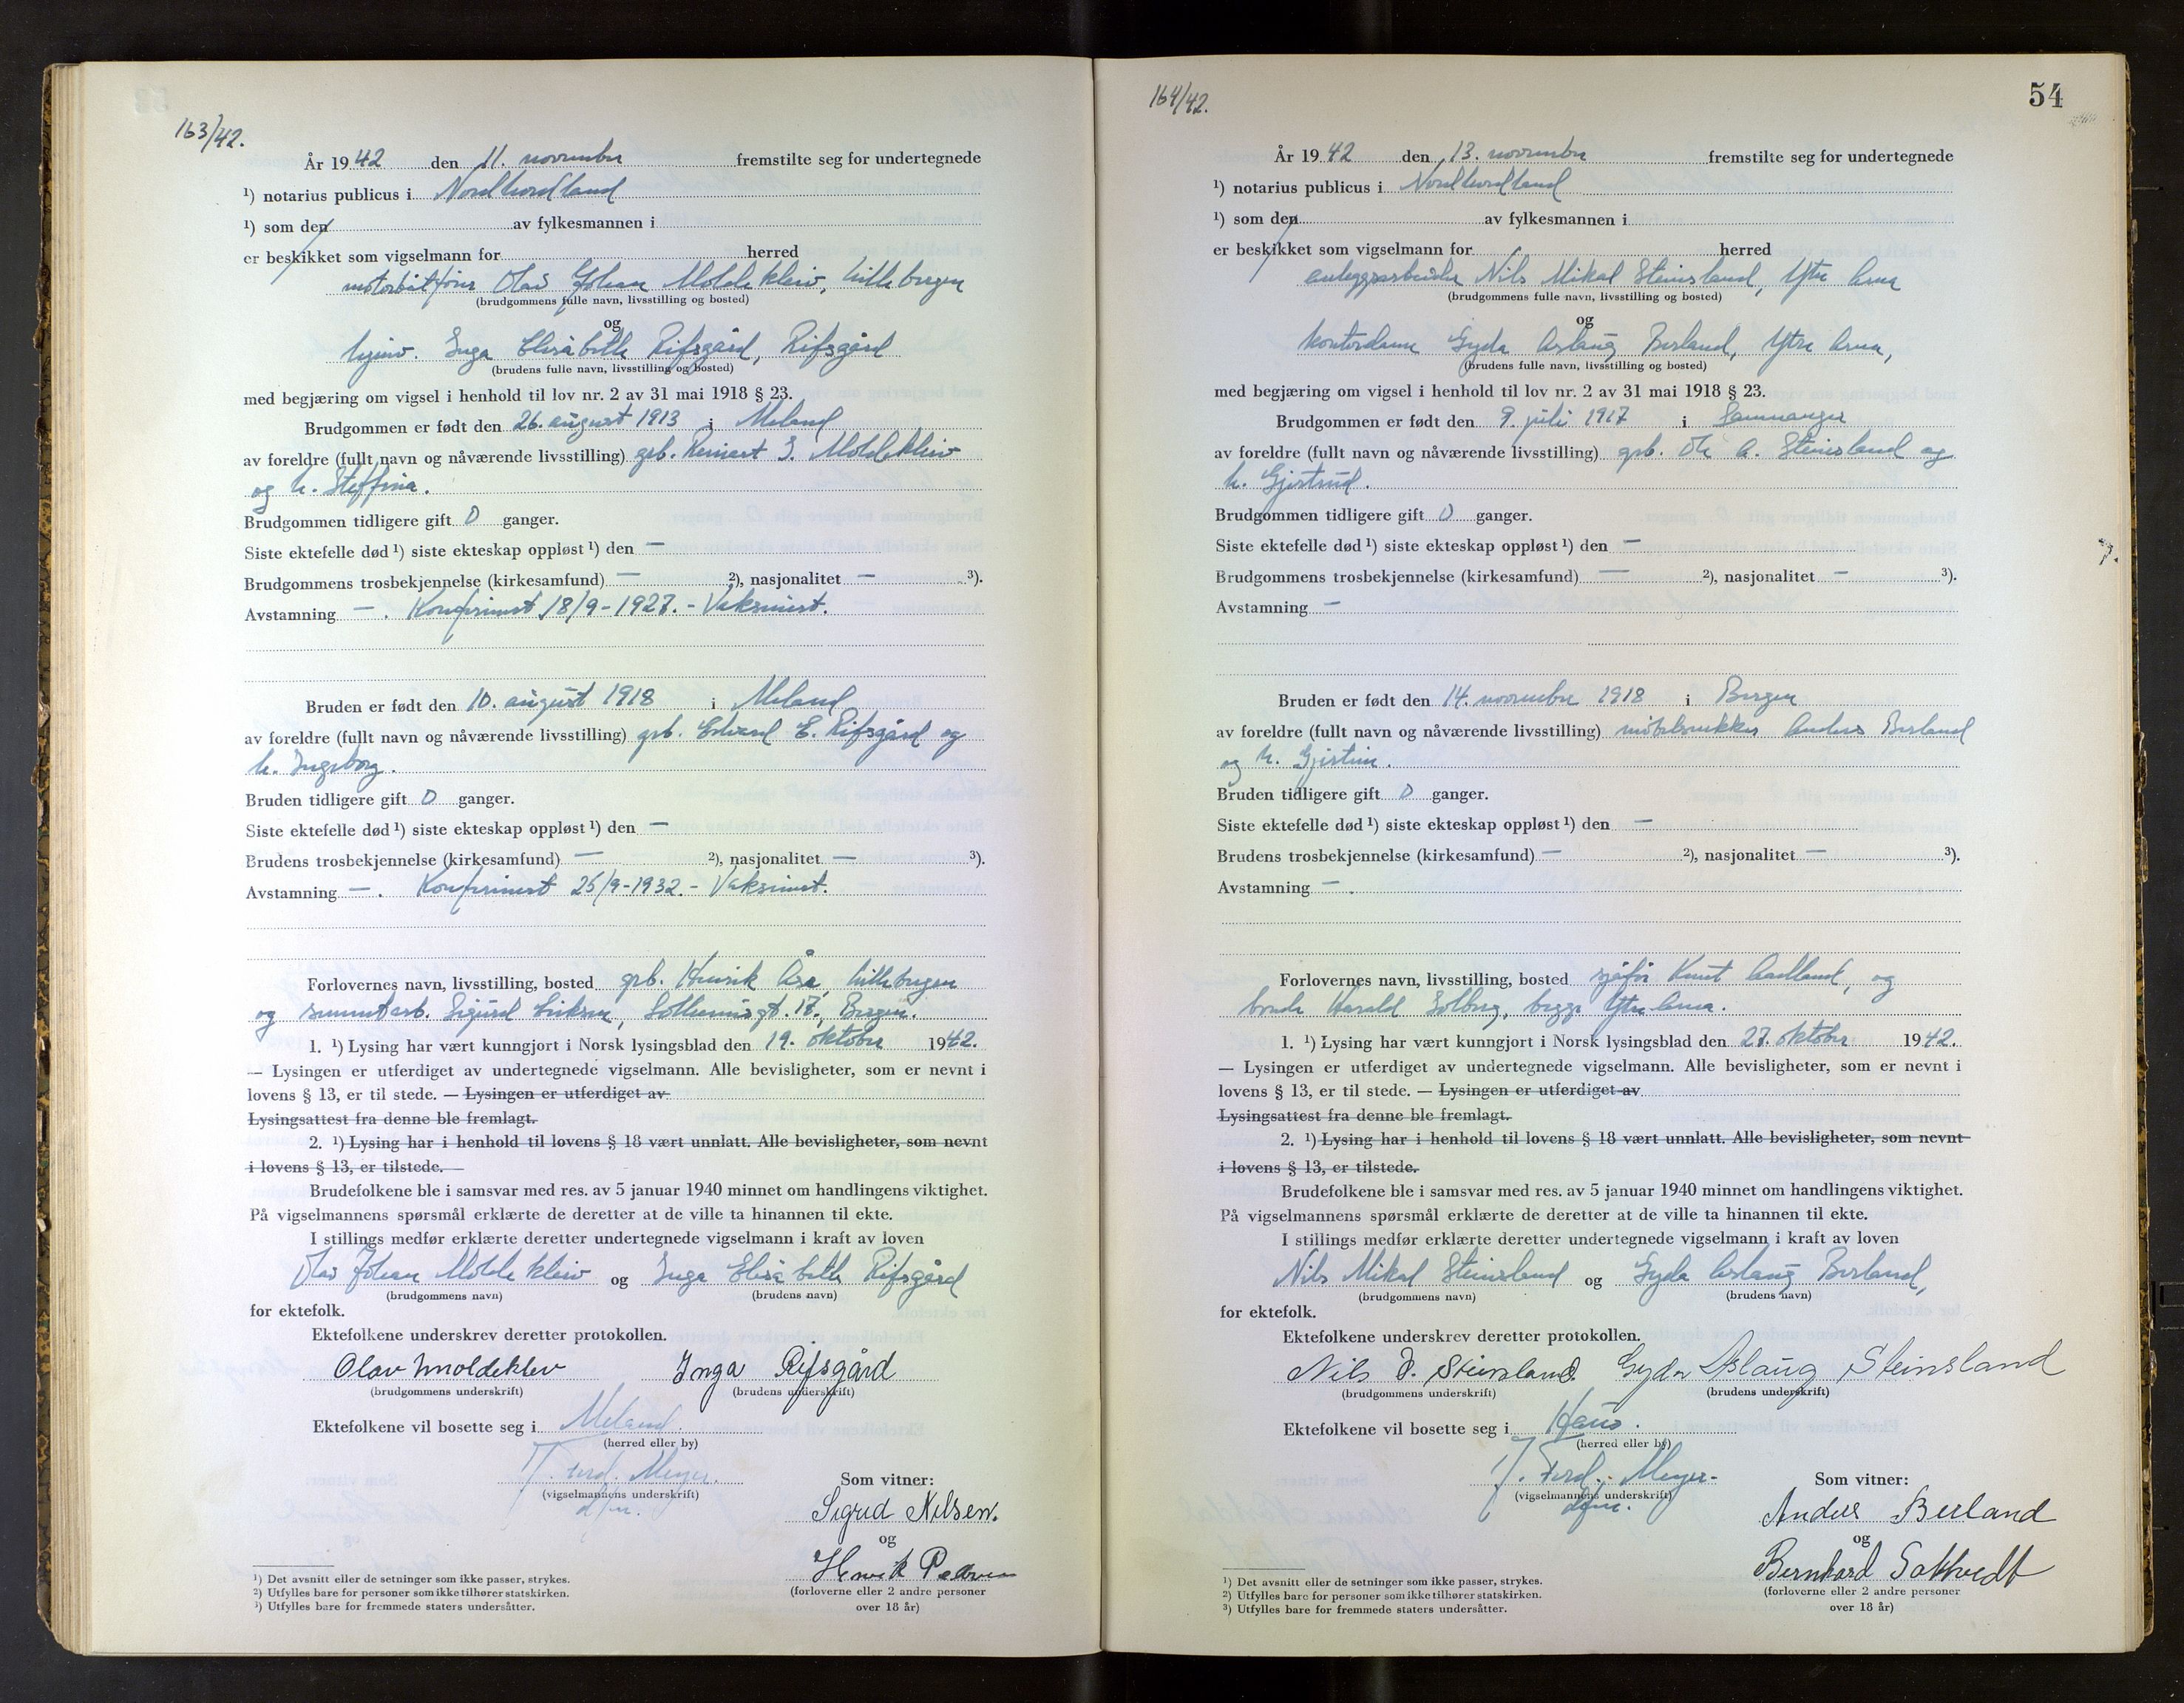 163/42.
År 1942 den 11. november fremstilte seg for undertegnede
¹) notarius publicus i Nordhordland
¹) som den av fylkesmannen i
er beskikket som vigselmann for herred
motorbåtfører Olav Johan Moldekleiv, Littlebergen
(brudgommens fulle navn, livsstilling og bosted)
og
hjemv. Inga Elisabeth Rifsgård, Rifsgård
(brudens fulle navn, livsstilling og bosted)
med begjæring om vigsel i henhold til lov nr. 2 av 31 mai 1918 § 23.
Brudgommen er født den 26. august 1913 i Meland
av foreldre (fullt navn og nåværende livsstilling) grb. Reinert J. Moldekleiv
og h. Steffina.
Brudgommen tidligere gift 0 ganger.
Siste ektefelle død ¹) siste ekteskap oppløst ¹) den —
Brudgommens trosbekjennelse (kirkesamfund) — ²), nasjonalitet — ³).
Avstamning — . Konfirmert 18/9-1927. - Vaksinert.
Bruden er født den 10. august 1918 i Meland
av foreldre (fullt navn og nåværende livsstilling) grb. Edvard E. Rifsgård og
h. Ingeborg.
Bruden tidligere gift 0 ganger.
Siste ektefelle død ¹) siste ekteskap oppløst ¹) den —
Brudens trosbekjennelse (kirkesamfund) — ²), nasjonalitet — ³).
Avstamning — . Konfirmert 25/9-1932. - Vaksinert.
Forlovernes navn, livsstilling, bosted grb. Henrik Åsa, Littlebergen
og sementarb. Sigurd Eriksen, Solheimsgt. 17, Bergen.
1. ¹) Lysing har vært kunngjort i Norsk lysingsblad den 19. oktober 1942.
— Lysingen er utferdiget av undertegnede vigselmann. Alle bevisligheter, som er nevnt i
lovens § 13, er til stede. — Lysingen er utferdiget av
Lysingsattest fra denne ble fremlagt.
2. ¹) Lysing har i henhold til lovens § 18 vært unnlatt. Alle bevisligheter, som nevnt
i lovens § 13, er tilstede. —
Brudefolkene ble i samsvar med res. av 5 januar 1940 minnet om handlingens viktighet.
På vigselmannens spørsmål erklærte de deretter at de ville ta hinannen til ekte.
I stillings medfør erklærte deretter undertegnede vigselmann i kraft av loven
Olav Johan Moldekleiv og Inga Elisabeth Rifsgård
(brudgommens navn) (brudens navn)
for ektefolk.
Ektefolkene underskrev deretter protokollen.
Olav Moldeklev Inga Rifsgård
(brudgommens underskrift) (brudens underskrift)
Ektefolkene vil bosette seg i Meland
(herred eller by)
J. Ferd. Meyer.
(vigselmannens underskrift)
dfm.
Som vitner:
Sigrud Nilsen.
og
Henrik
(forloverne eller 2 andre personer
over 18 år)
¹) Det avsnitt eller de setninger som ikke passer, strykes.
²) Utfylles bare for personer som ikke tilhører statskirken.
³) Utfylles bare for fremmede staters undersåtter.
164/42.
54
År 1942 den 13. november fremstilte seg for undertegnede
¹) notarius publicus i Nordhordland
¹) som den av fylkesmannen i
er beskikket som vigselmann for herred
anleggsarbeider Nils Mikal Steinsland, Ytre Arna
(brudgommens fulle navn, livsstilling og bosted)
og
kontordame Gyda Aslaug Berland, Ytre Arna,
(brudens fulle navn, livsstilling og bosted)
med begjæring om vigsel i henhold til lov nr. 2 av 31 mai 1918 § 23.
Brudgommen er født den 9. juli 1917 i Samnanger
av foreldre (fullt navn og nåværende livsstilling) grb. Ole A. Steinsland og
h. Gjertrud.
Brudgommen tidligere gift 0 ganger.
Siste ektefelle død ¹) siste ekteskap oppløst ¹) den —
Brudgommens trosbekjennelse (kirkesamfund) — ²), nasjonalitet — ³).
Avstamning —
Bruden er født den 14. november 1918 i Bergen
av foreldre (fullt navn og nåværende livsstilling) møbelsnekker Anders Berland
og h. Gjertine.
Bruden tidligere gift 0 ganger.
Siste ektefelle død ¹) siste ekteskap oppløst ¹) den —
Brudens trosbekjennelse (kirkesamfund) — ²), nasjonalitet — ³).
Avstamning — .
Forlovernes navn, livsstilling, bosted sjåfør Knut Aadland, og
bonde Harald Solberg, begge Ytre Arna.
1. ¹) Lysing har vært kunngjort i Norsk lysingsblad den 27. oktober 1942.
— Lysingen er utferdiget av undertegnede vigselmann. Alle bevisligheter, som er nevnt i
lovens § 13, er til stede. — Lysingen er utferdiget av
Lysingsattest fra denne ble fremlagt.
2. ¹) Lysing har i henhold til lovens § 18 vært unnlatt. Alle bevisligheter, som nevnt
i lovens § 13, er tilstede.
Brudefolkene ble i samsvar med res. av 5 januar 1940 minnet om handlingens viktighet.
På vigselmannens spørsmål erklærte de deretter at de ville ta hinannen til ekte.
I stillings medfør erklærte deretter undertegnede vigselmann i kraft av loven
Nils Mikal Steinsland og Gyda Aslaug Berland,
(brudgommens navn) (brudens navn)
for ektefolk.
Ektefolkene underskrev deretter protokollen.
Nils O. Steinsland. Gyda Aslaug Steinsland
(brudgommens underskrift) (brudens underskrift)
Ektefolkene vil bosette seg i Haus.
(herred eller by)
J. Ferd. Meyer
(vigselmannens underskrift)
dfm.
Som vitner:
Anders Berland
og
Bernhard
(forloverne eller 2 andre personer
over 18 år)
¹) Det avsnitt eller de setninger som ikke passer, strykes.
²) Utfylles bare for personer som ikke tilhører statskirken.
³) Utfylles bare for fremmede staters undersåtter.